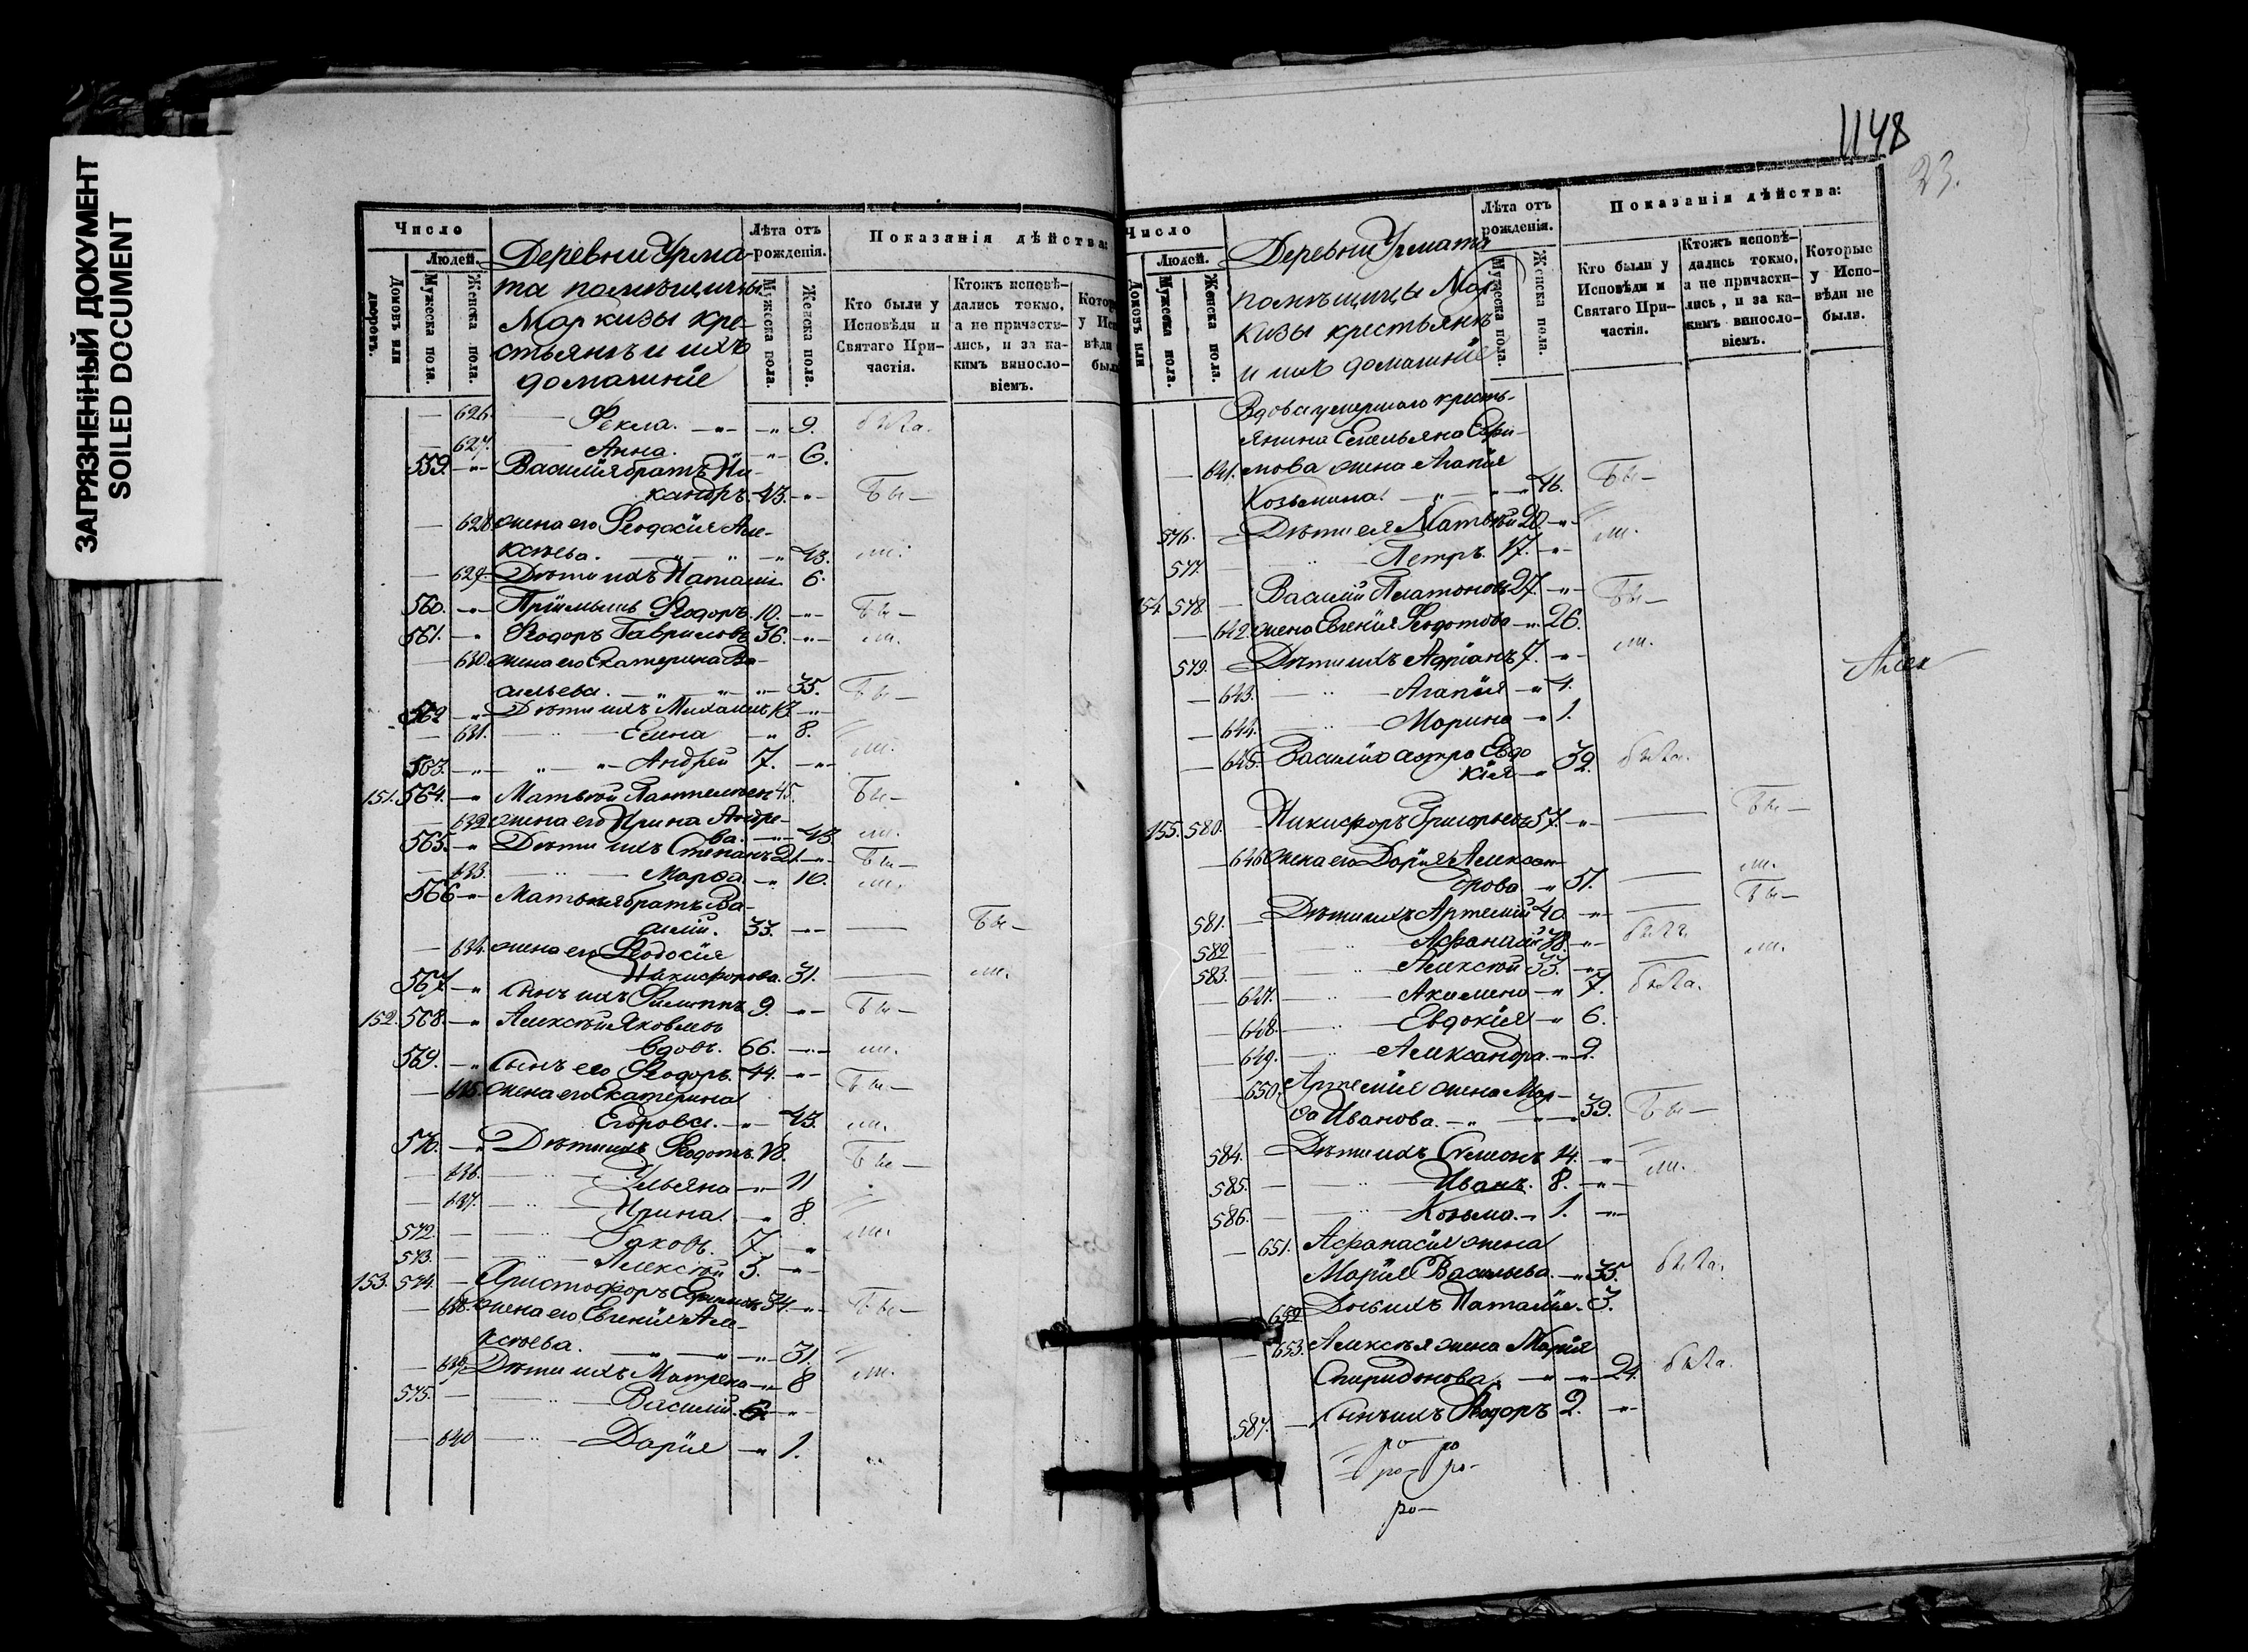 ЗАГРЯЗНЕННЫЙ ДОКУМЕНТ
SOILED DOCUMENT
Число
Людей.
Домовъ или дворовъ.
Мужеска пола.
Женска пола.
Деревни Урма-
та помѣщицы
Маркизы кре-
стьянъ и ихъ
домашніе
Лѣта отъ рожденія.
Мужеска пола.
Женска пола.
Показанія дѣйства:
Кто были у Исповѣди и Святаго Причастія.
Ктожъ исповѣдались токмо, а не причастились, и за какимъ винословіемъ.
626. Фекла. 9. была.
627. Анна. 6.
559. Василія братъ Ни-
кандръ. 43. Бы-
628 жена его Ѳеодосія Але-
ксѣева. 43. ли.
629. Дѣти ихъ Наталія 6.
560. Пріемышъ Ѳеодоръ. 10. Бы-
561. Ѳеодоръ Гавриловъ 36. ли.
630. жена его Екатерина Ва-
сильева. 35. Бы-
562 Дѣти ихъ Михаилъ 13
631. Елена 8.
563. Андрей 7. ли.
151. 564. Матвѣй Пантелеевъ 45. Бы-
632 жена его Ирина Андре-
ва. 43. ли.
565. Дѣти ихъ Степанъ 21. Бы-
633. Марѳа. 10. ли.
566 Матвѣя братъ Ва-
силій. 33. Бы-
634. жена его Ѳеодосія
Никифорова. 31. ли.
567 Сынъ ихъ Филиппъ 9. Бы-
152. 568. Алексѣй Яковлевъ
вдовъ. 66. ли.
569. Сынъ его Ѳеодоръ. 44. Бы-
635. жена его Екатерина
Егорова. 43. ли.
570. Дѣти ихъ Ѳеодотъ. 18. Бы-
636. Ульяна 11
637. Ирина. 8. ли.
572. Іаковъ. 7.
573. Алексѣй 3.
153. 574. Христофоръ Ефимовъ 34. Бы-
638. жена его Евгенія Але-
ксѣева. 31.
639. Дѣти ихъ Матрена 8 ли.
575. Василій. 6.
640 Дарія 1.
1148
23.
Число
Людей.
Домовъ или
Мужеска пола.
Женска пола.
Деревни Урмата
помѣщицы Мар
кизы крестьянъ
и ихъ домашніе
Лѣта отъ рожденія.
Мужеска пола.
Женска пола.
Показанія дѣйства:
Кто были у Исповѣди и Святаго Причастія.
Ктожъ исповѣдались токмо, а не причастились, и за какимъ винословіемъ.
Которые у Исповѣди не были.
Вдова умершаго кресть-
янина Емельяна Ефи-
641. мова жена Агапія
Козьмина. 46. Бы-
576. Дѣти ея Матвѣй 20. ли.
577. Петръ. 17.
154. 578. Василій Платоновъ 27. Бы-
642. жена Евгенія Ѳеодотова 26.
579. Дѣти ихъ Адріанъ 7. ли.
643. Агапія 4.
644. Марина 1.
645. Василія сестра Евдо
кія 32. была.
155. 580. Никифоръ Григорьевъ 57. Бы-
646 жена его Дарія Алексан
дрова. 57. ли.
581. Дѣти ихъ Артемій 40. Бы-
582 Афанасій 38. былъ.
583. Алексѣй 33. ли.
647. Акилина 7. была.
648. Евдокія 6.
649. Александра. 2.
650. Артемія жена Мар-
ѳа Иванова. 39. Бы-
584. Дѣти ихъ Симеонъ 14.
585. Иванъ. 8. ли.
586. Козьма. 1.
651. Афанасія жена
Марія Васильева. 35. была.
652 Дочь ихъ Наталія. 3.
653. Алексѣя жена Марія
Спиридонова. 24. была.
587. Сынъ ихъ Ѳеодоръ 2.